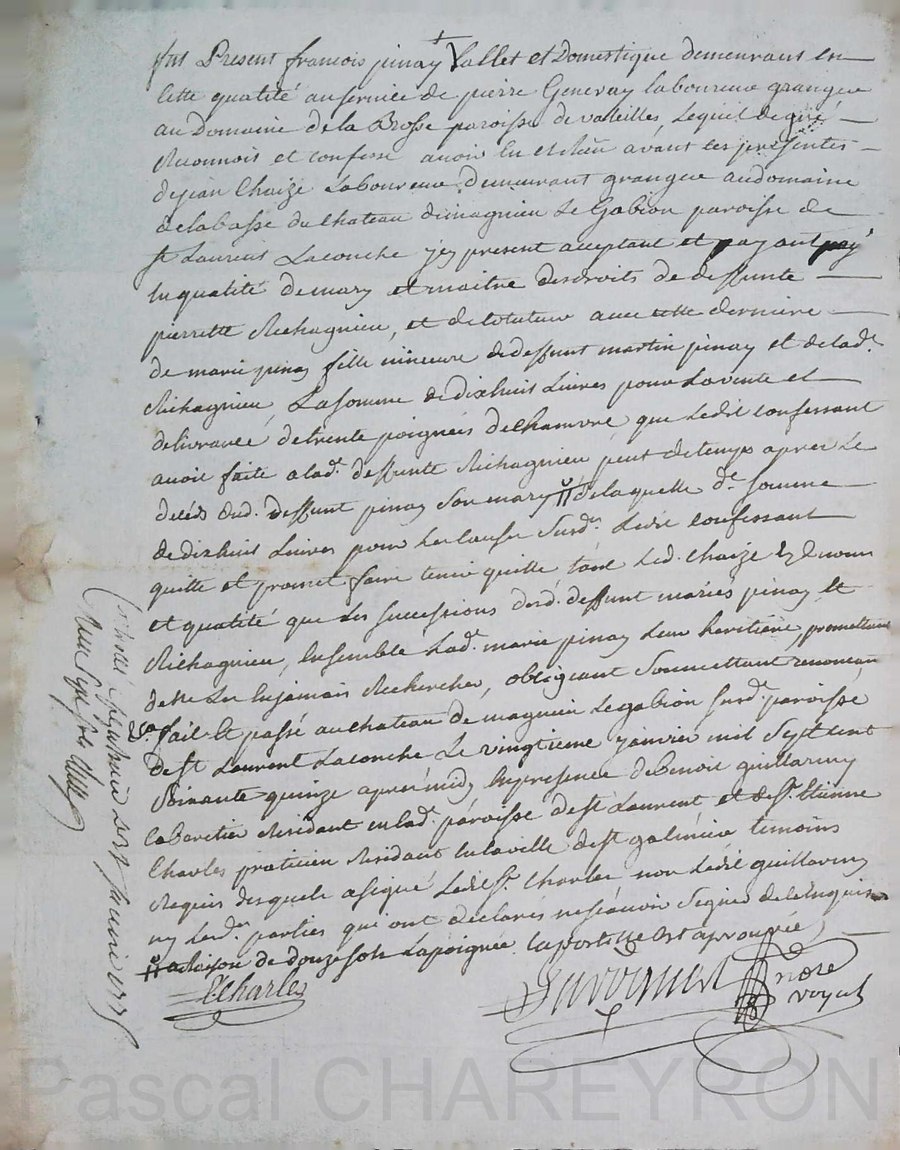 fut Present francois pinay Vallet et Domestique demeurant en
cette qualité au service de pierre Genevay laboureur granger
au Domaine de la Brosse paroisse de valeilles, Lequel de gré
Reconnoit et confesse avoir eu et Receu avant ces presentes
de jean Chaize Laboureur demeurant granger au domaine
de la basse du Chateau de magnieu Le Gabion paroisse de
st Laurent Laconche icy present acceptant et payant
en qualité de mary et maitre des droits de deffunte
pierrette Richagnieu, et de tuteur avec cette derniere
de marie pinay fille mineure de deffunt martin pinay et de lad.
Richagnieu, La somme de dixhuit Livres pour La vente et
delivrance de trente poignées de Chanvre que Ledit confessant
avoit faite a lad. deffunte Richagnieu peut de temps apres Le
deces dud. deffunt pinay son mary de laquelle de. somme
de dixhuit Livres pour Les causes susd. Ledit confessant
quitte et promet faire tenir quitte tant Led. Chaize
et qualité que Les successions desd. deffunt mariés pinay et
Richagnieu, Ensemble Lad. marie pinay Leur heritiere, promettant
de ne Les en jamais Rechercher, obligeant soumettant renoncant
fait et passé au chateau de magnieu Le gabion susd. paroisse
de st Laurent Laconche Le vingtieme janvier mil sept cent
soixante quinze apres midy En presence de Benoit guillarmy
Cabaretier Residant en lad. paroisse de st Laurent et de sr. Etienne
Charles praticien Residant en la ville de st galmier temoins
Requis desquels a signé Ledit sr. Charles non Ledit guillarmy
ny Lesd. parties qui ont declarés ne scavoir signer de ce Enquis
a Raison de douze sols La poignée Lapostille est aprouvée
ECharles
notre
royal
Controllé
Pascal CHAREYRON